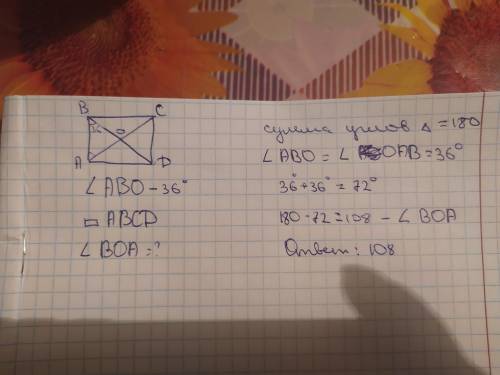 B C
36 O
A D
∠ ABO - 36°
▭ ABCD
∠ BOA = ?
сумма углов △ = 180
∠ ABO = ∠ OAB = 36°
36° + 36° = 72°
180 - 72 = 108 - ∠ BOA
Ответ: 108